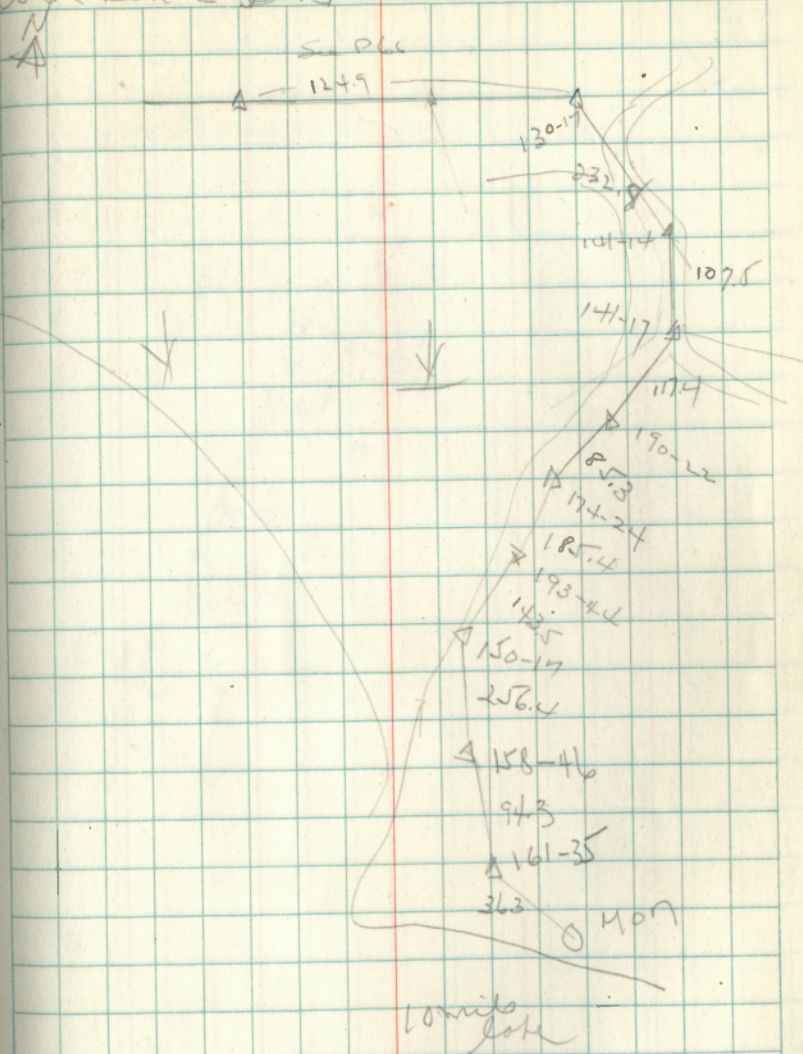 N
See P66
124.9
130-17
232.8
141-14
107.5
141-17
117.4
190-22
85.3
174-24
185.4
193-44
143.5
150-17
256.4
158-46
94.3
161-35
363
MON
10 mile